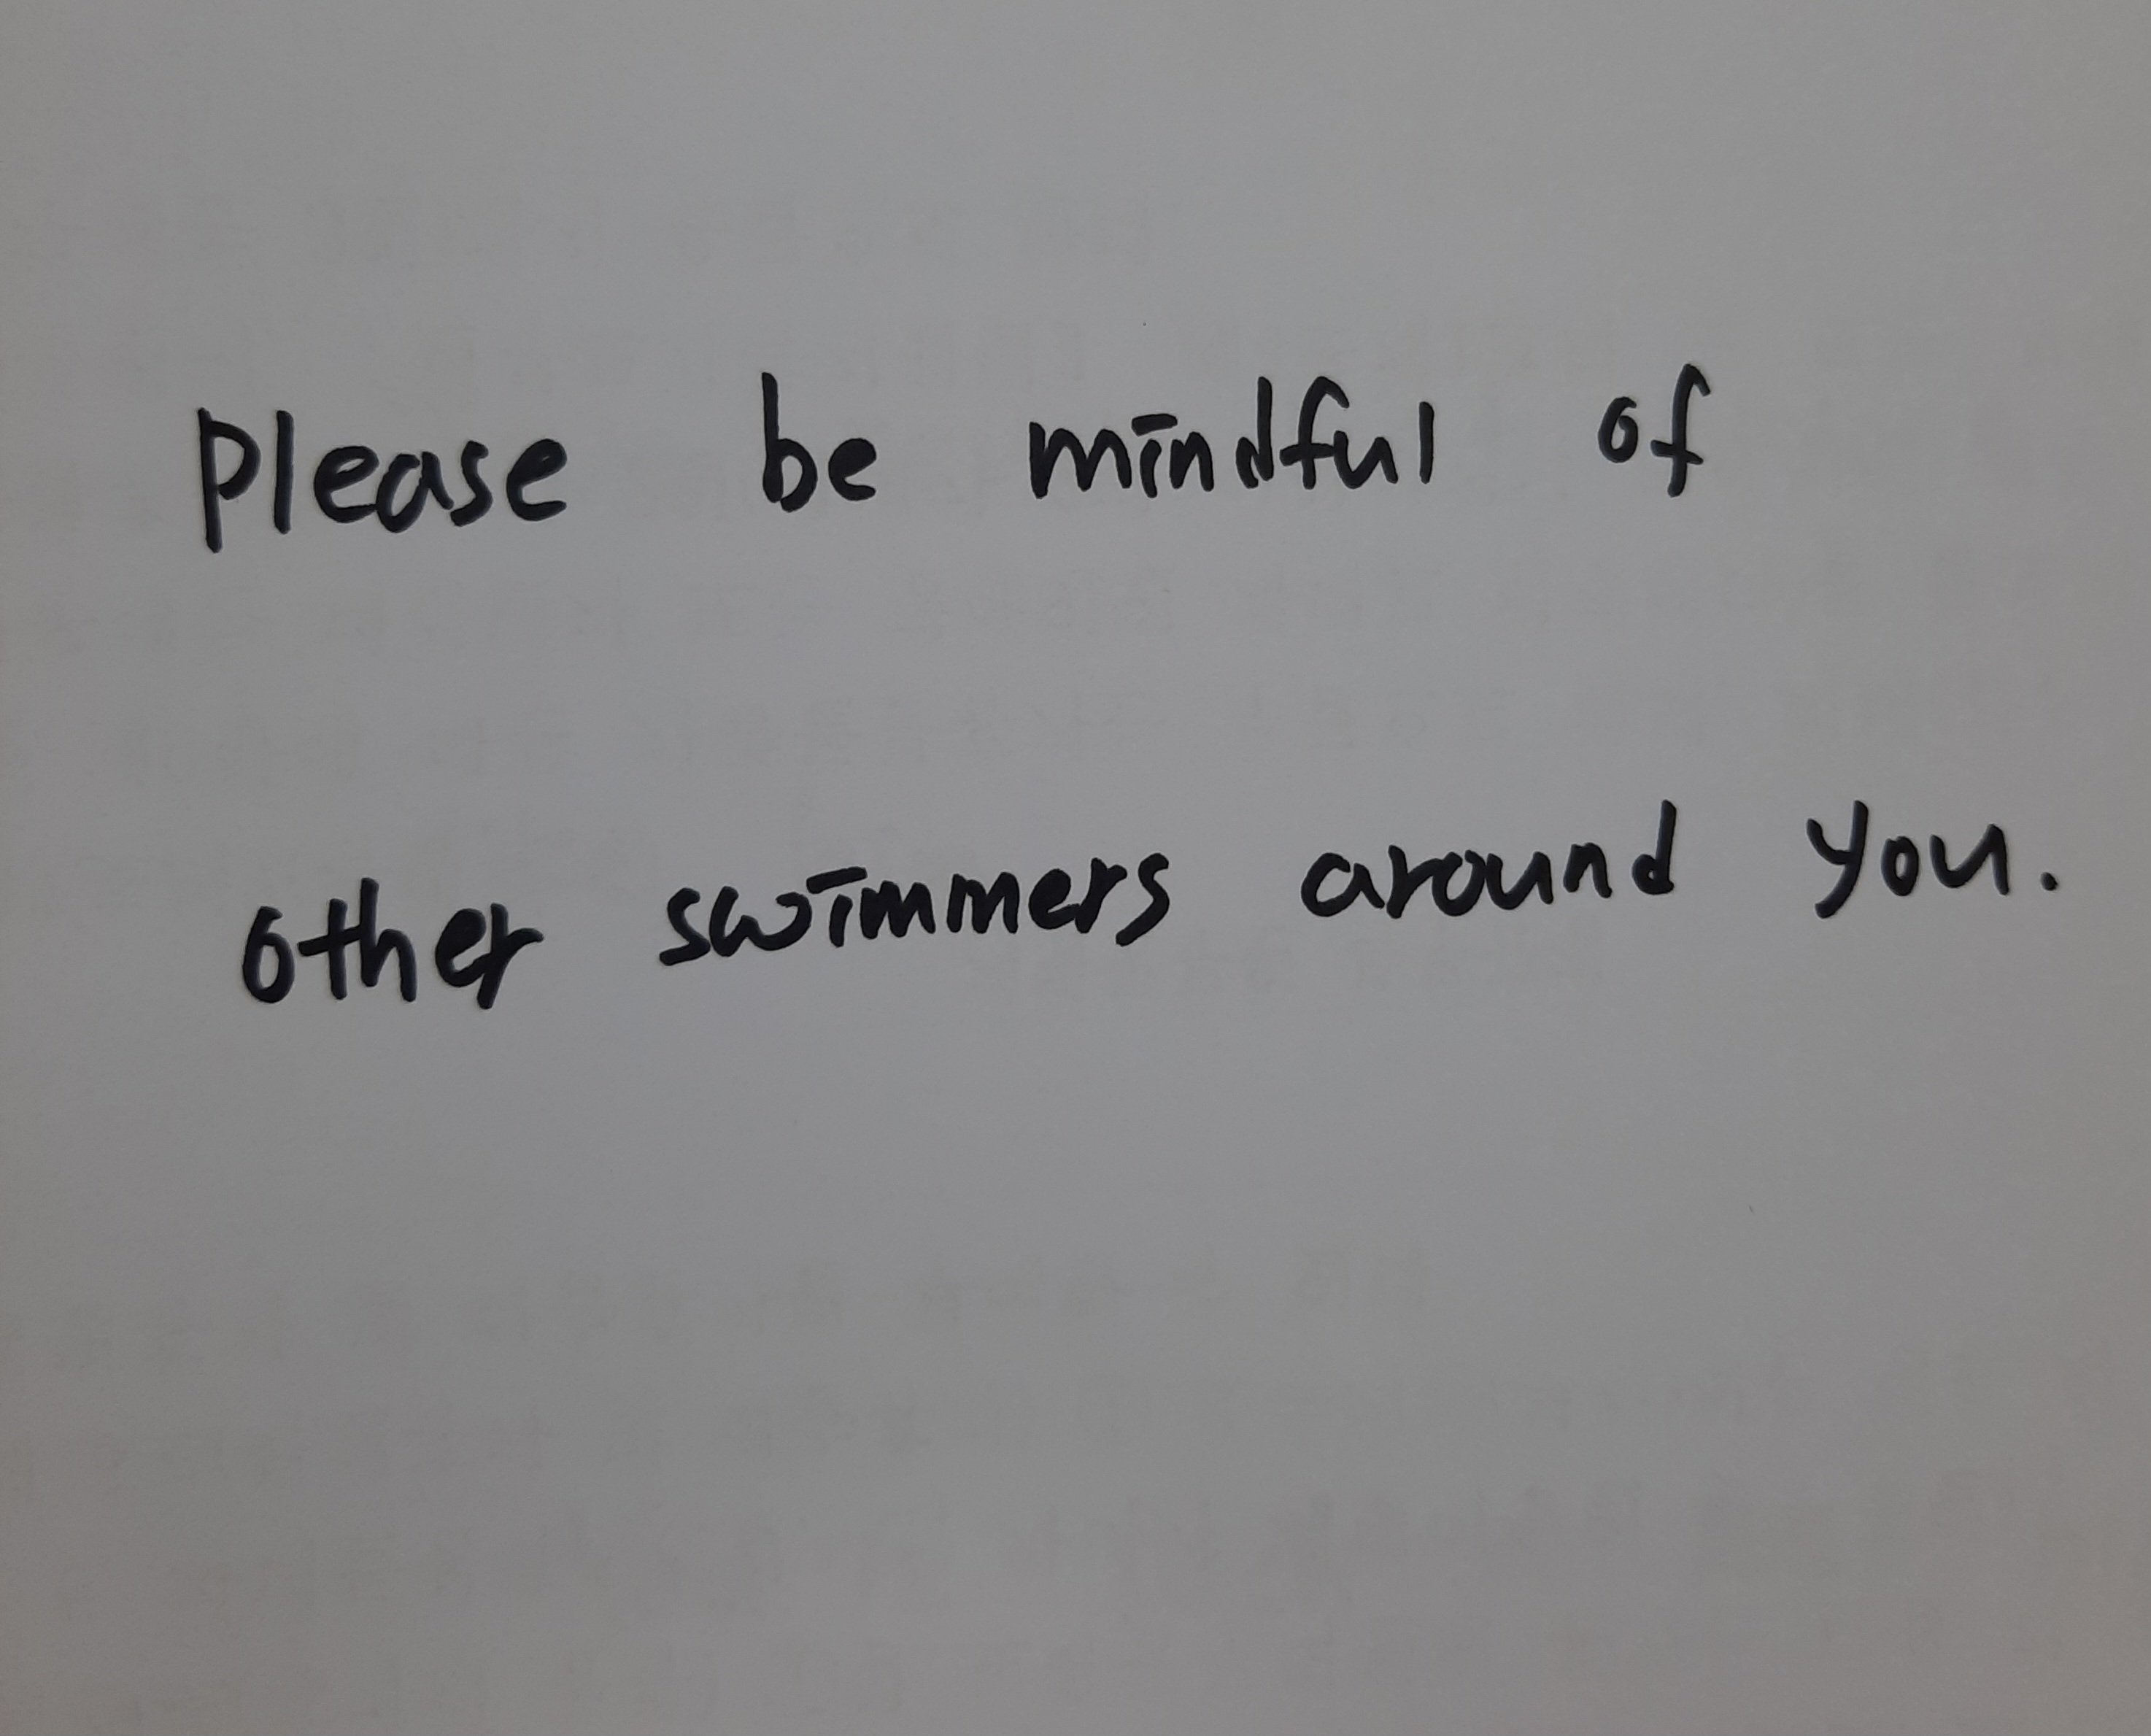 please be mindful of
other swimmers around you.